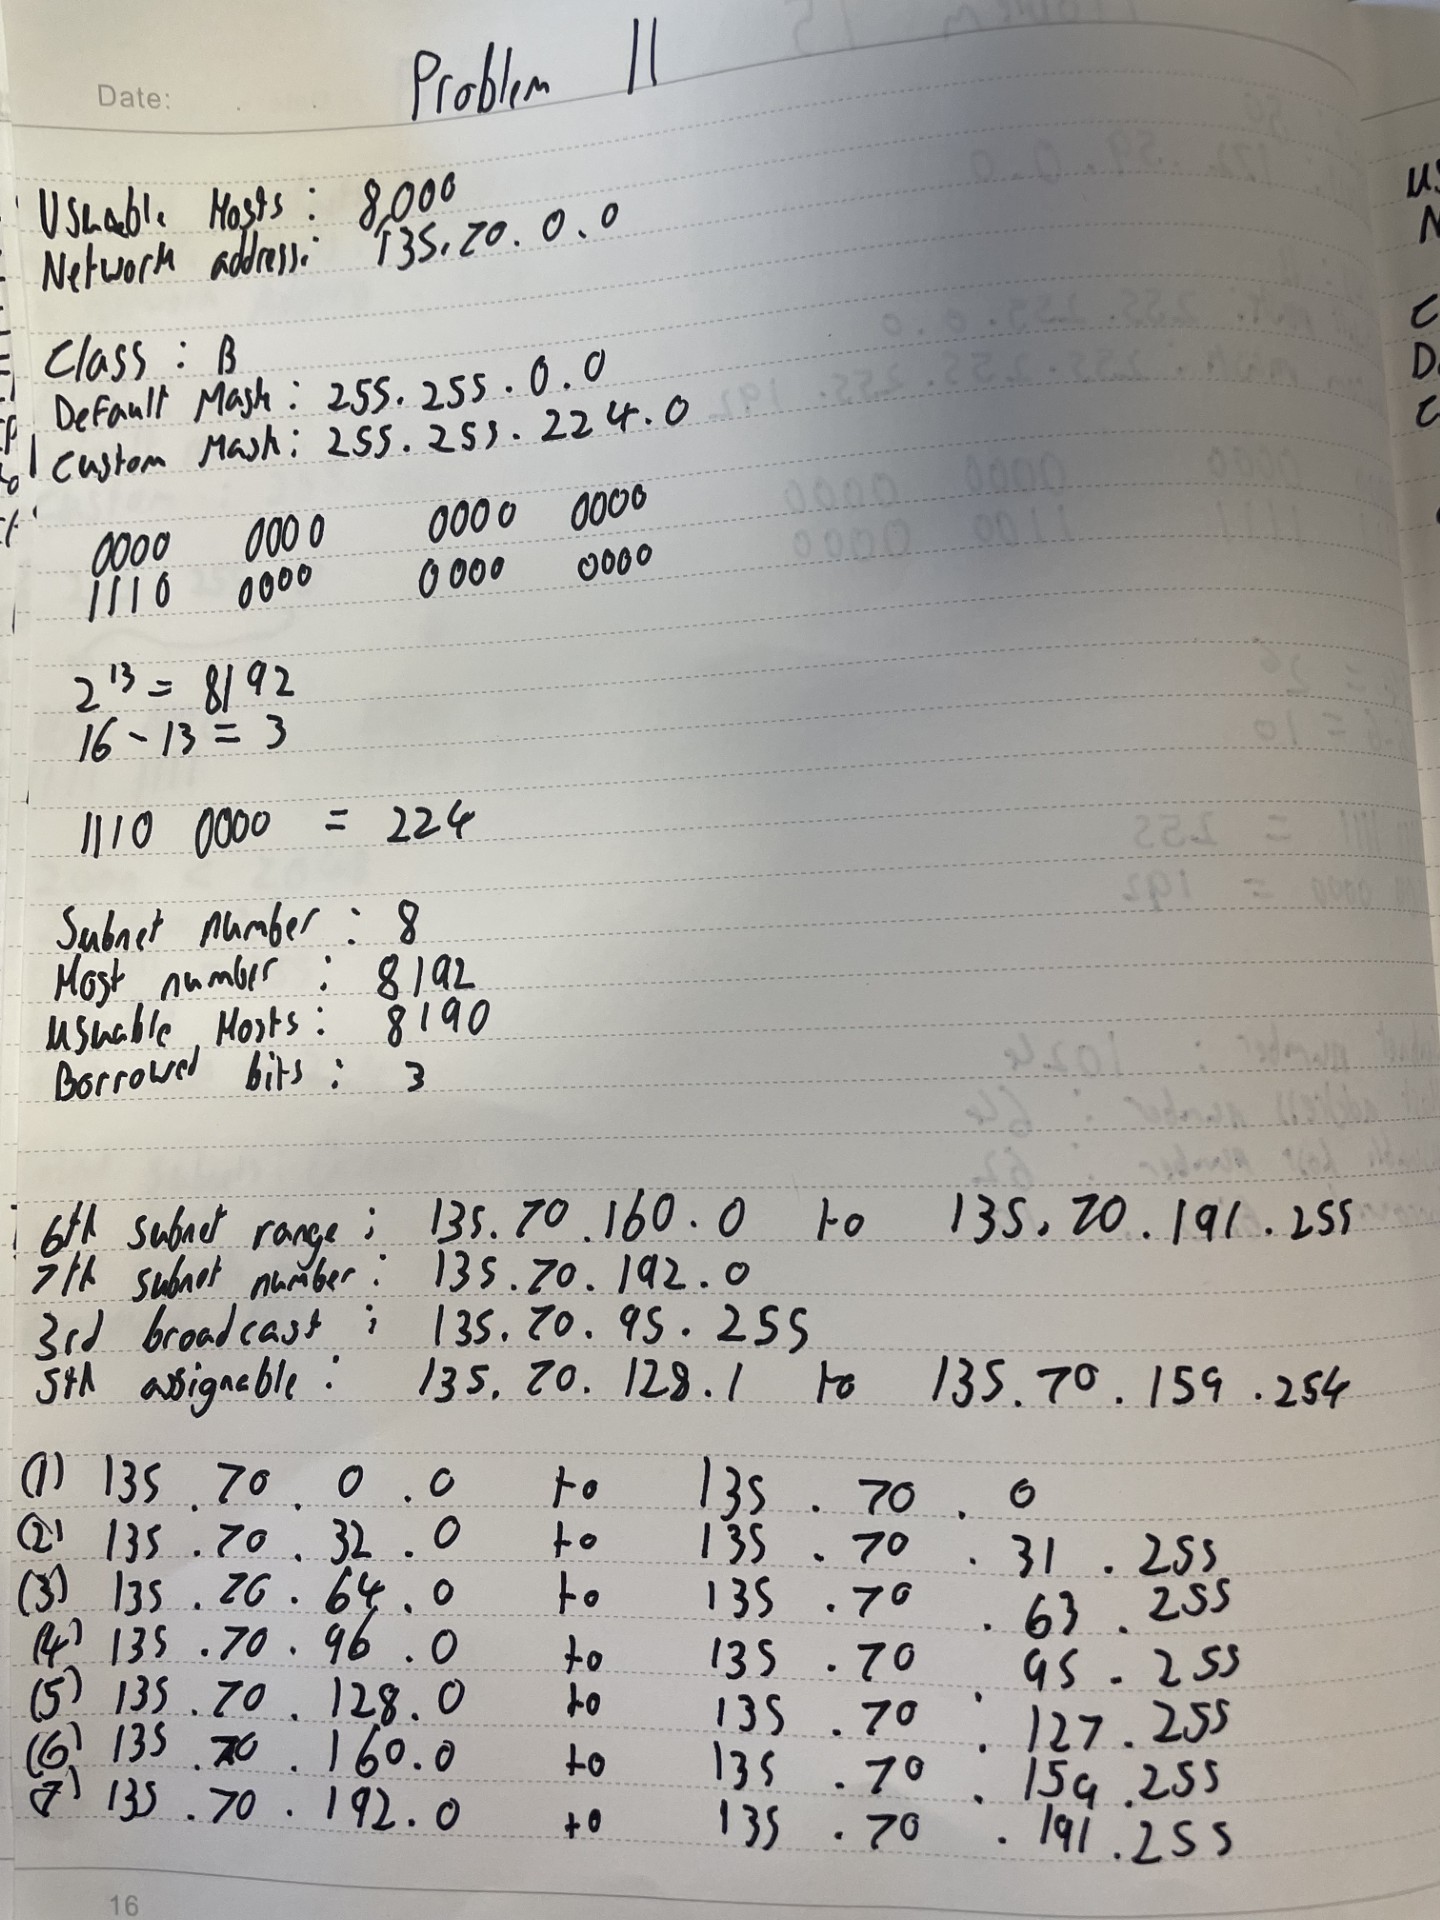 Problem 11
Date:
Usuable Hosts : 8,000
Network address: 135.70.0.0
Class : B
Default Mask : 255.255.0.0
Custom Mask: 255.255.224.0
0000 0000 0000 0000
1110 0000 0000 0000
2^13 = 8192
16 - 13 = 3
1110 0000 = 224
Subnet number : 8
Host number : 8192
Usuable Hosts : 8190
Borrowed bits : 3
6th subnet range : 135.70.160.0 to 135.70.191.255
7th subnet number : 135.70.192.0
3rd broadcast : 135.70.95.255
5th assignable : 135.70.128.1 to 135.70.159.254
(1) 135.70.0.0 to 135.70.0
(2) 135.70.32.0 to 135.70.31.255
(3) 135.70.64.0 to 135.70.63.255
(4) 135.70.96.0 to 135.70 95.255
(5) 135.70.128.0 to 135.70.127.255
(6) 135.70.160.0 to 135.70.159.255
(7) 135.70.192.0 to 135.70.191.255
16